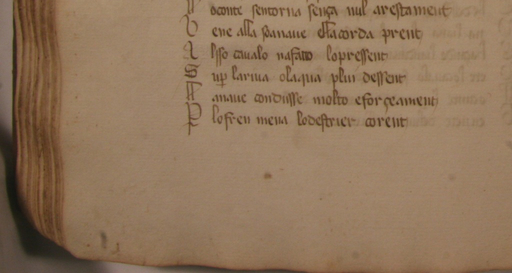 dconte sentorna sença nul arestament
V ene alla soa naue ella corda prent
A lsso cavalo nafrato lopressent
S up lariua olaqua plui dessent
naue condusse molto eforçeament
P lofren mena lodestrier corent